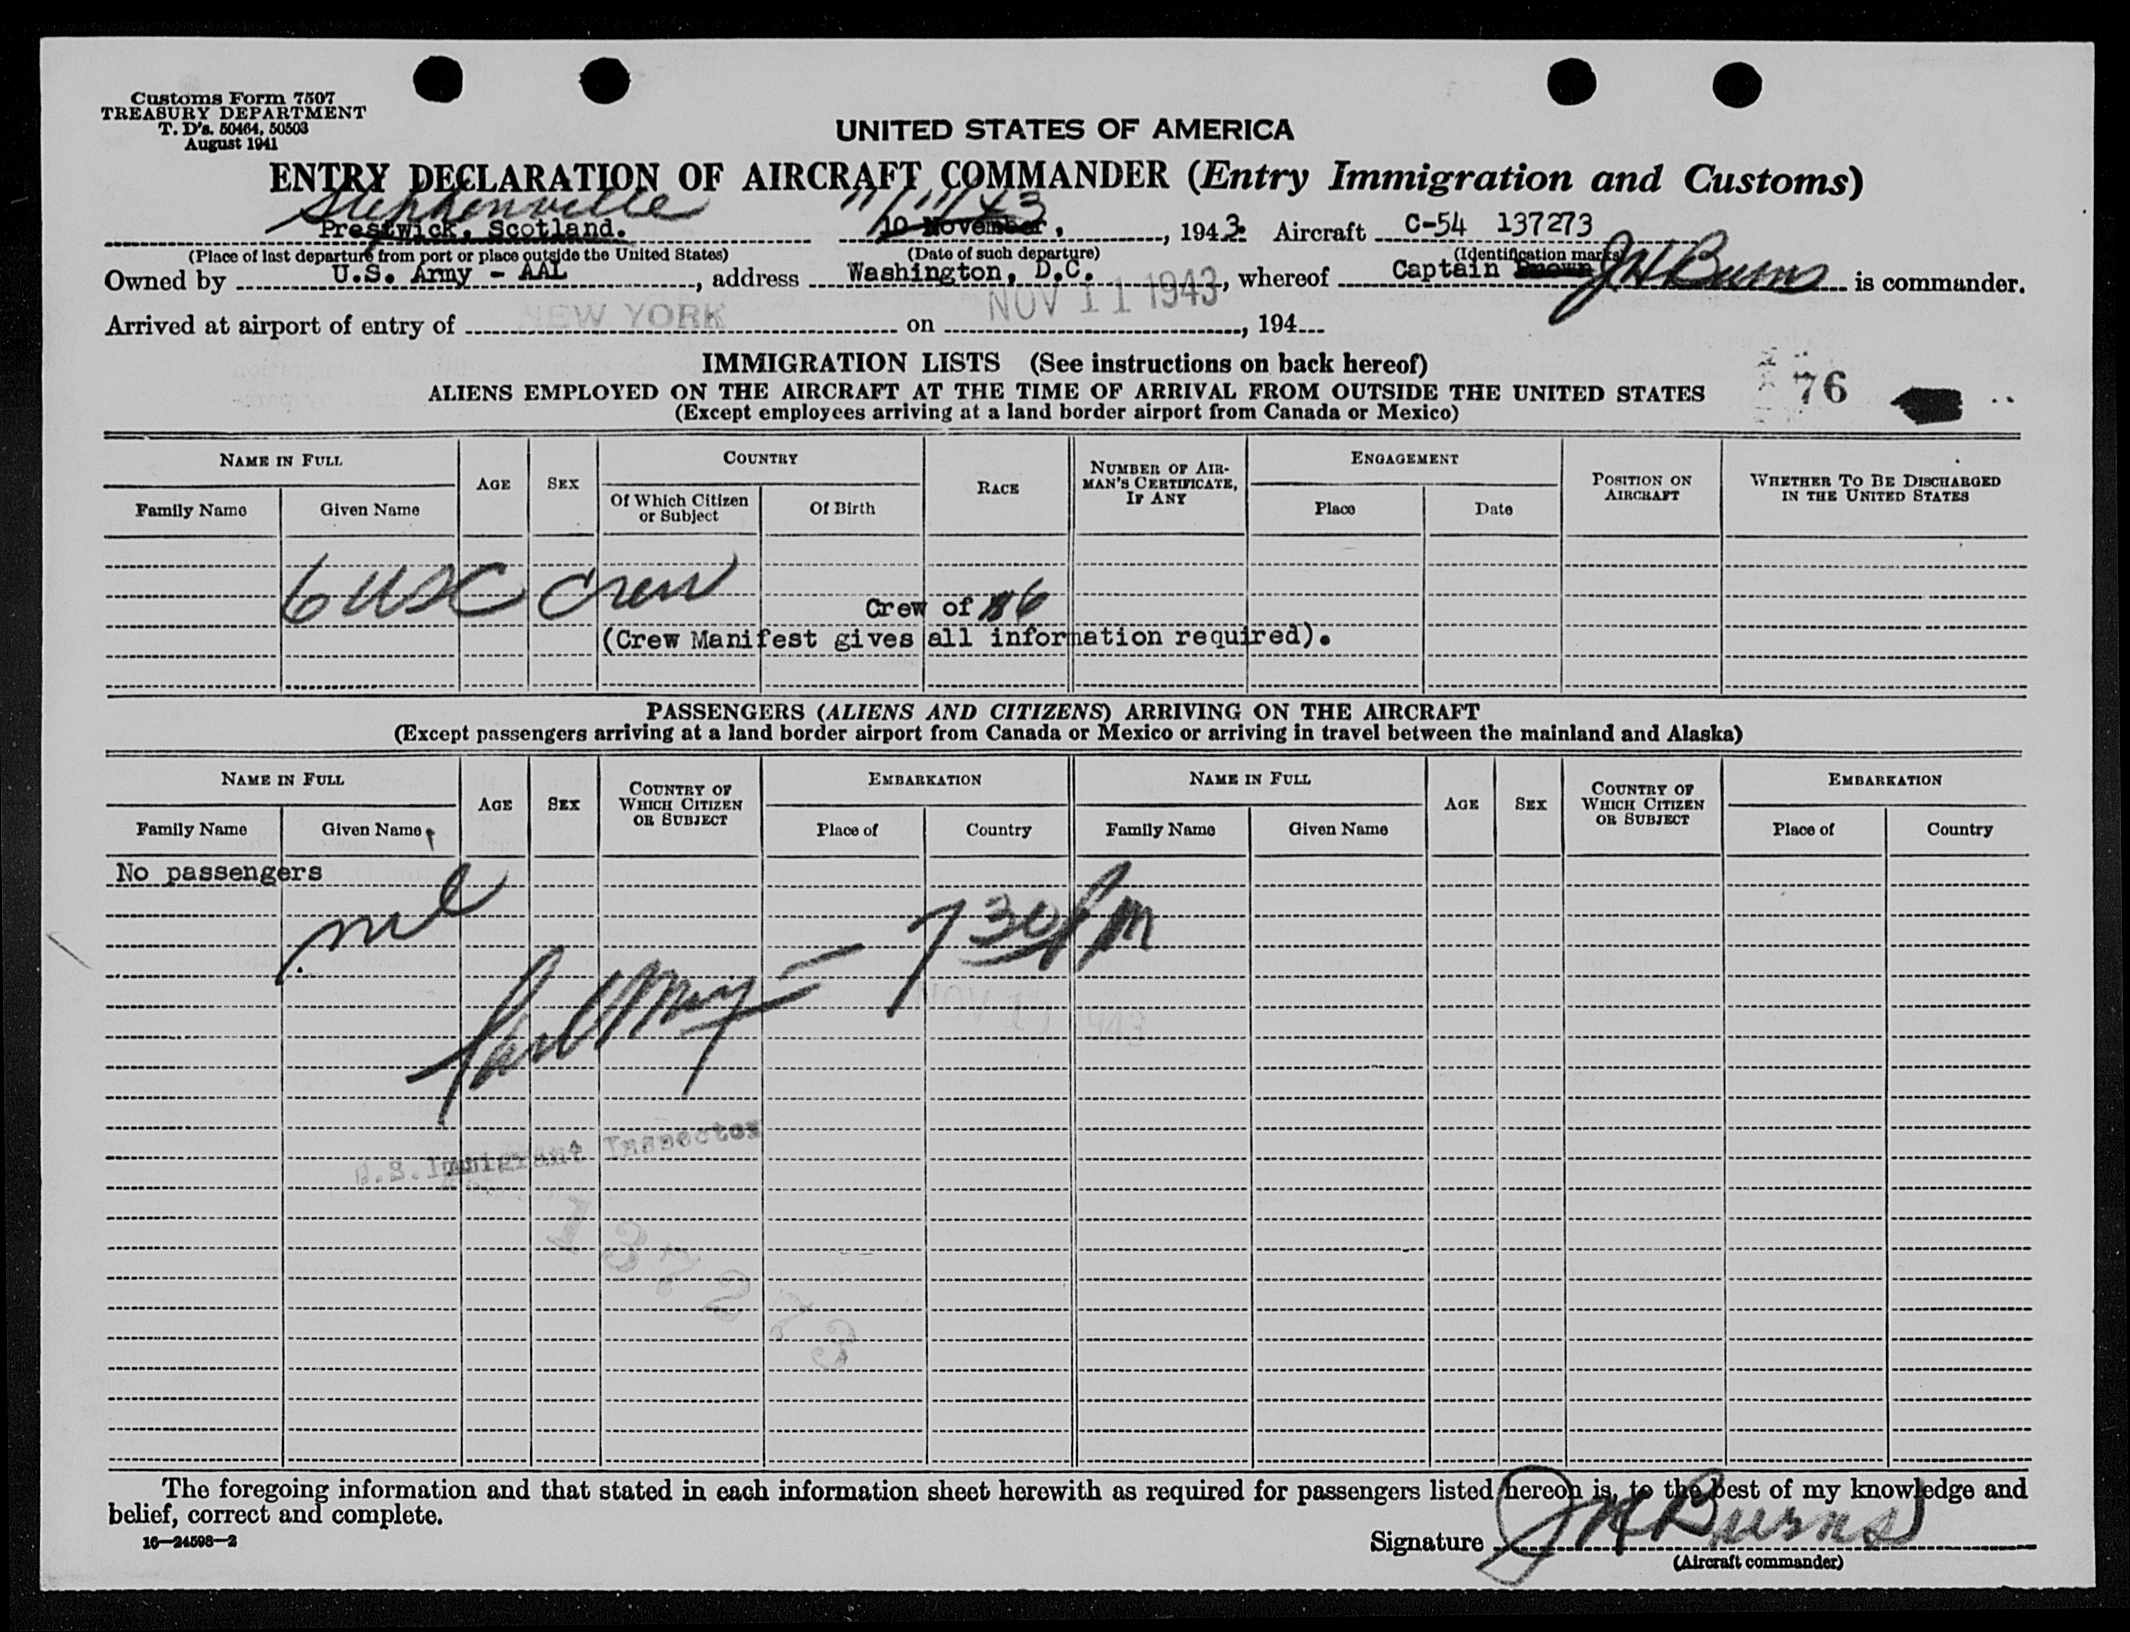 Customs Form 7507
TREASURY DEPARTMENT
T. D's. 50464, 50503
August 1941
UNITED STATES OF AMERICA
ENTRY DECLARATION OF AIRCRAFT COMMANDER (Entry Immigration and Customs)
Stephenville 11/11/43
Prestwick, Scotland. 10 November, , 1943. Aircraft C-54 137273
(Place of last departure from port or place outside the United States) (Date of such departure) (Identification marks)
Owned by U.S. Army - AAL, address Washington, D.C., whereof Captain JH Burns is commander.
Arrived at airport of entry of NEW YORK on NOV 11 1943, 194
IMMIGRATION LISTS (See instructions on back hereof)
ALIENS EMPLOYED ON THE AIRCRAFT AT THE TIME OF ARRIVAL FROM OUTSIDE THE UNITED STATES
76
(Except employees arriving at a land border airport from Canada or Mexico)
NAME IN FULL AGE SEX COUNTRY RACE NUMBER OF AIRMAN'S CERTIFICATE, IF ANY ENGAGEMENT POSITION ON AIRCRAFT WHETHER TO BE DISCHARGED IN THE UNITED STATES
Family Name Given Name Of Which Citizen or Subject Of Birth Place Date
6 USC Crew
Crew of 6
(Crew Manifest gives all information required).
PASSENGERS (ALIENS AND CITIZENS) ARRIVING ON THE AIRCRAFT
(Except passengers arriving at a land border airport from Canada or Mexico or arriving in travel between the mainland and Alaska)
NAME IN FULL AGE SEX COUNTRY OF WHICH CITIZEN OR SUBJECT EMBARKATION NAME IN FULL AGE SEX COUNTRY OF WHICH CITIZEN OR SUBJECT EMBARKATION
Family Name Given Name Place of Country Family Name Given Name Place of Country
No passengers
7 30 pm
NOV 11 1943
U.S. Immigrant Inspector
137273
The foregoing information and that stated in each information sheet herewith as required for passengers listed hereon is, to the best of my knowledge and
belief, correct and complete.
16—24598-2
Signature JH Burns
(Aircraft commander)